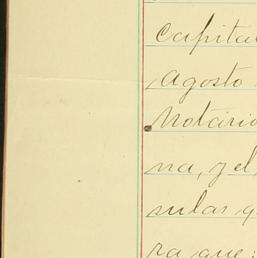 capital
Agosto
Notario
na, y el
sulas q
ra que: